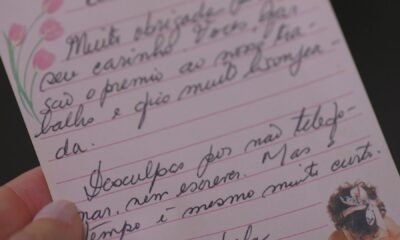 Muito obrigada p
seu carinho. Vocês, dar
são o prêmio ao nosso tra-
balho e fico muito lisonjea-
da.
Desculpas por não telefo-
nar, nem escrever. Mas o
tempo é mesmo muito curto.